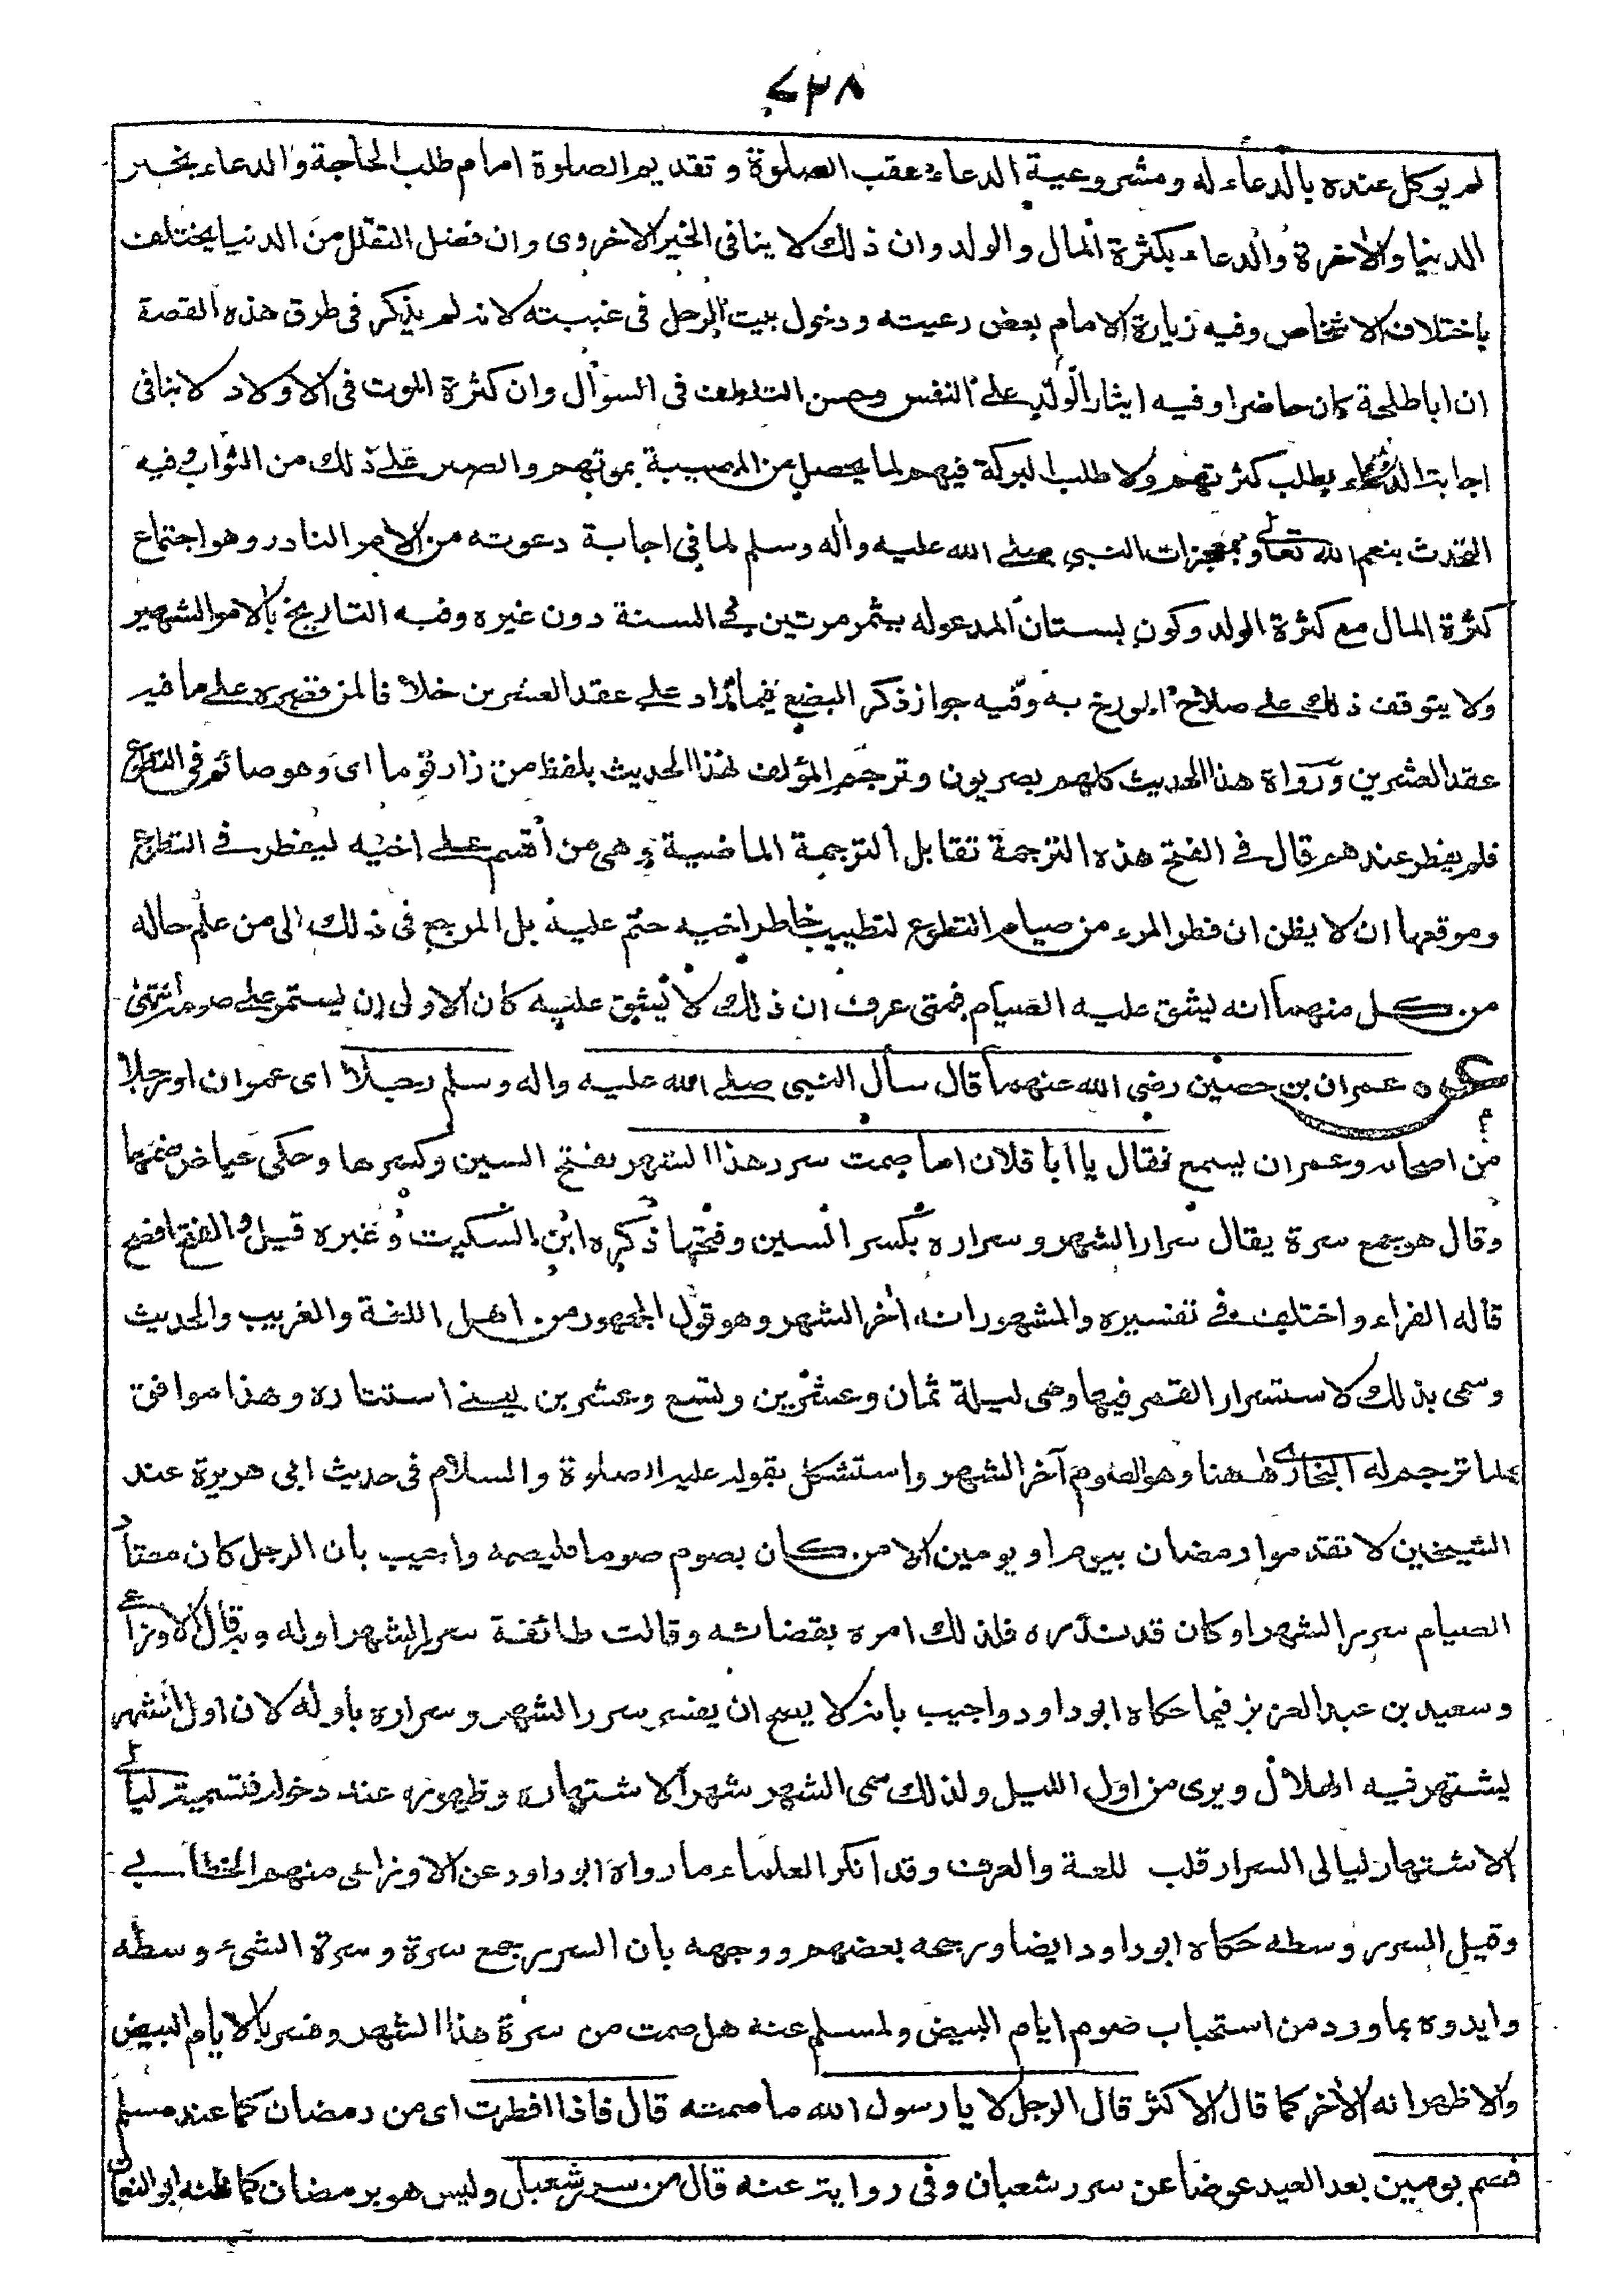 ٧٣٨
لم يوكل عنده بالدعاء له ومشروعية الدعاء عقب الصلوة وتقديم الصلوة امام طلب الحاجة والدعاء بخير
الدنيا والأخرة والدعاء بكثرة المال والولد وان ذلك لا ينافى الخير الاخروى وان فضل التقلل من الدنيا يختلف
باختلاف الاشخاص وفيه زيارة الامام بعض رعيته ودخول بيت الرجل فى غيبته لانه لم يذكر فى طرق هذه القصة
ان اباطلحة كان حاضرا وفيه ايثار الولد على النفس وحسن التلطف فى السؤال وان كثرة الموت فى الاولاد لا ينافى
اجابة الدعاء بطلب كثرتهم ولا طلب البركة فيهم لما يحصل من المصيبة بموتهم والصبر على ذلك من الثواب وفيه
التحدث بنعم الله تعالى وبمعجزات النبى صلے الله عليه واله وسلم لما فى اجابة دعوته من الامر النادر وهو اجتماع
كثرة المال مع كثرة الولد وكون بستان المدعوله يثمر مرتين فے السنة دون غيره وفيه التاريخ بالامر الشهير
ولا يتوقف ذلك على صلاح المورخ به وفيه جواز ذكر البضع فيما زاد على عقد العشرين خلافا لمن قصره على ما فيه
عقد العشرين ورواة هذا الحديث كلهم بصريون وترجم المؤلف لهذا الحديث بلفظ من زار قوما اى وهو صائم فى التطوع
فلم يفطر عندهم قال فے الفتح هذه الترجمة تقابل الترجمة الماضية وهى من اقسم على اخيه ليفطر فے التطوع
وموقعها ان لا يظن ان فطر المرء من صيام التطوع لتطييب خاطر اخيه حتم عليه بل المرجع فى ذلك الى من علم حاله
من كل منهما انه يشق عليه الصيام فمتى عرف ان ذلك لا يشق عليه كان الاولى ان يستمر على صومه انتهى
عن عمران بن حصين رضى الله عنهما قال سأل النبى صلے الله عليه واله وسلم رجلا اى عمران او رجلا
من اصحابه وعمران يسمع فقال يا ابا فلان اما صمت سرر هذا الشهر بفتح السين وكسرها وحكى عياض ضمها
وقال هو جمع سرة يقال سرار الشهر وسراره بكسر السين وفتحها ذكره ابن السكيت وغيره قيل والفتح افصح
قاله الفراء واختلف فے تفسيره والمشهور انه اخر الشهر وهو قول الجمهور من اهل اللغة والغريب والحديث
وسمى بذلك لاستسرار القمر فيها وهى ليلة ثمان وعشرين وتسع وعشرين يعنے استتاره وهذا موافق
لما ترجم له البخارى ههنا وهو الصوم آخر الشهر واستشكل بقوله عليه الصلوة والسلام فى حديث ابى هريرة عند
الشيخين لا تقدموا رمضان بيوم او يومين الا من كان يصوم صوما فليصمه واجيب بان الرجل كان معتاد
الصيام سرر الشهر او كان قد نذره فلذلك امره بقضائه وقالت طائفة سرر الشهر اوله وبه قال الاوزاعى
وسعيد بن عبد العزيز فيما حكاه ابو داود واجيب بانه لا يصح ان يفسر سرر الشهر وسراره باوله لان اول الشهر
يشتهر فيه الهلال ويرى من اول الليل ولذلك سمى الشهر شهرا لاشتهاره وظهوره عند دخوله فتسمية ليالى
الاشتهار ليالى السرار قلب للغة والعرف وقد انكر العلماء ما رواه ابو داود عن الاوزاعى منهم الخطابے
وقيل السرر وسطه حكاه ابو داود ايضا ورجحه بعضهم ووجهه بان السرر جمع سرة وسرة الشئ وسطه
وايدوه بما ورد من استحباب صوم ايام البيض ولمسلم عنه هل صمت من سرة هذا الشهر وفسر بالايام البيض
والاظهر انه الأخر كما قال الاكثر قال الرجل لا يا رسول الله ما صمته قال فاذا افطرت اى من رمضان كما عند مسلم
فصم يومين بعد العيد عوضا عن سرر شعبان وفى رواية عنه قال من سرر شعبان وليس هو برمضان كما ظنه ابو النعمان